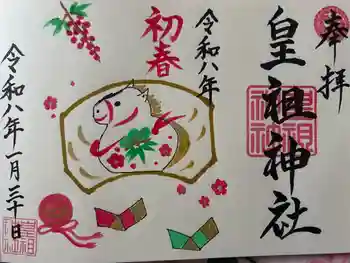 奉拝
皇祖神社
令和八年
初春
令和八年一月三十日